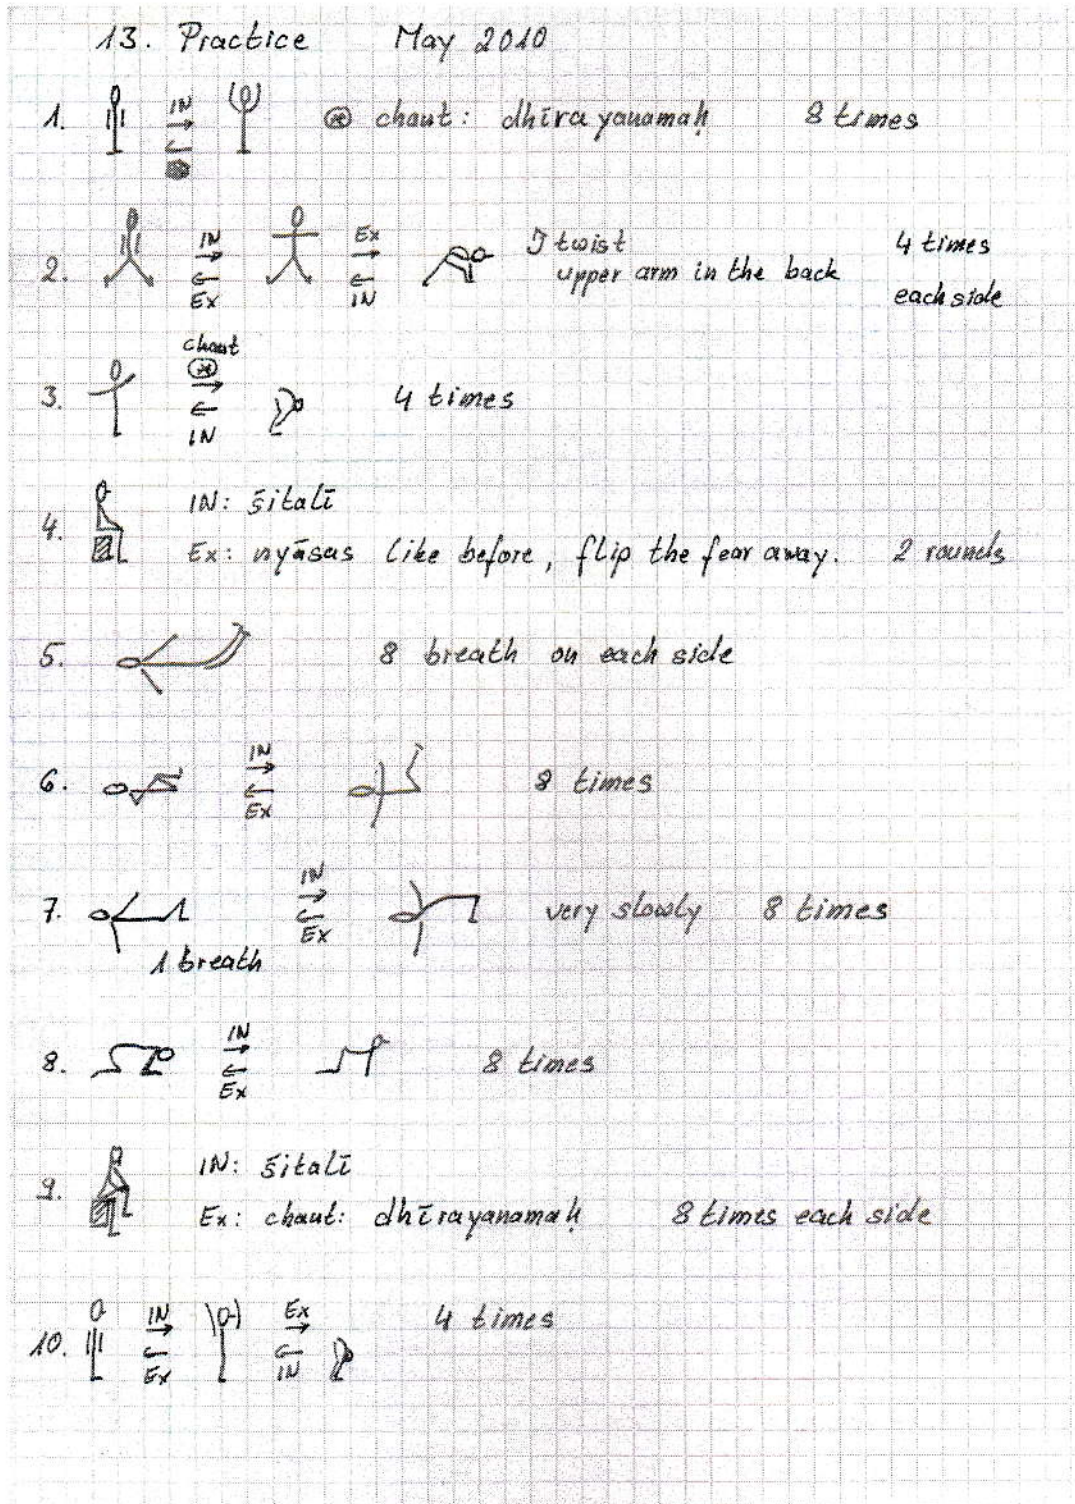 13. Practice May 2010
1. IN ⊛ chant: dhīrayanamaḥ 8 times
2. IN Ex Ex IN I twist 4 times
upper arm in the back
each side
chant
3. ⊛ IN 4 times
4. IN: śitalī
Ex: nyāsas like before, flip the fear away. 2 rounds
5. 8 breath on each side
6. IN Ex 8 times
7. IN Ex very slowly 8 times
1 breath
8. IN Ex 8 times
9. IN: śitalī
Ex: chant: dhīrayanamaḥ 8 times each side
10. IN Ex Ex IN 4 times